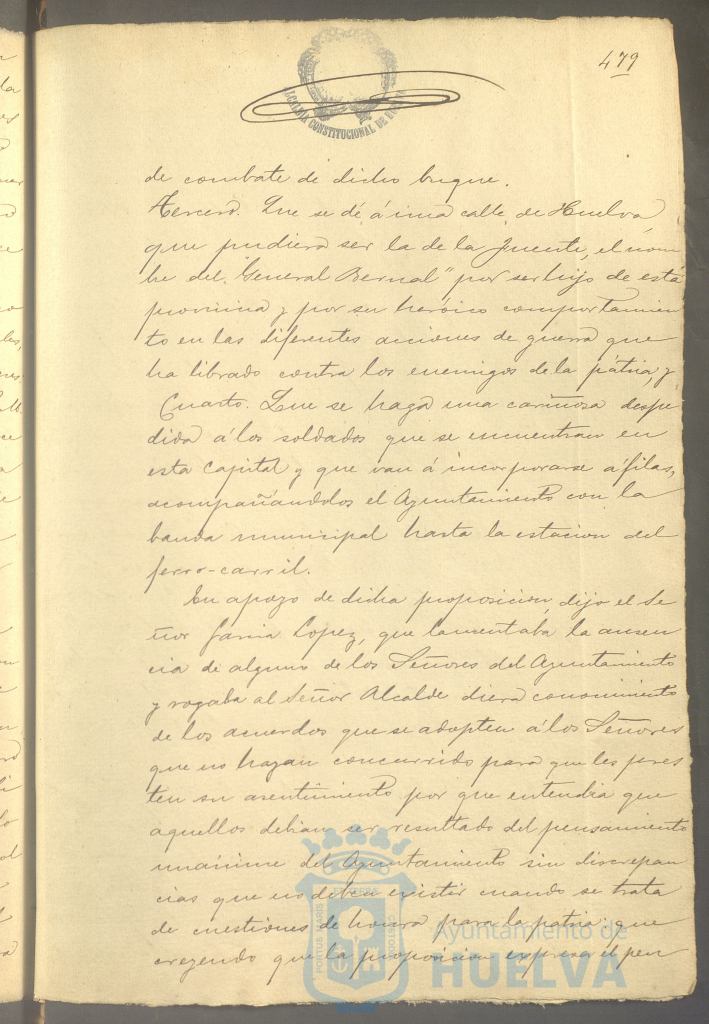 479
ALCALDIA CONSTITUCIONAL DE
de combate de dicho buque.
Tercero. Que se dé á una calle de Huelva,
que pudiera ser la de la Fuente, el nom
bre del "General Bernal" por ser hijo de esta
provincia y por su heróico comportamien
to en las diferentes acciones de guerra que
ha librado contra los enemigos de la pátria, y
Cuarto. Que se haga una cariñosa despe
dida á los soldados que se encuentran en
esta Capital y que van á incorporarse á filas,
acompañándolos el Ayuntamiento con la
banda municipal hasta la estacion del
ferro-carril.
En apoyo de dicha proposicion, dijo el Se
ñor Garcia Lopez, que lamentaba la ausen
cia de alguno de los Señores del Ayuntamiento
y rogaba al Señor Alcalde diera conocimiento
de los acuerdos que se adopten á los Señores
que no hayan concurrido para que les pres
ten su asentimiento por que entendia que
aquellos debian ser resultado del pensamiento
unánime del Ayuntamiento sin discrepan
cias que no deben existir cuando se trata
de cuestiones de honra para la patria; que
creyendo que la proposicion expresa el pen
PORTUS MARIS
CUSTODIA
Ayuntamiento de
HUELVA